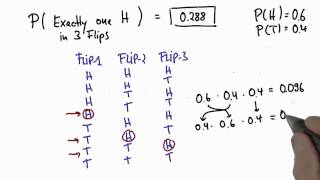 P( Exactly one H ) = 0.288
in 3 Flips
P(H)=0.6
P(T)=0.4
Flip-1 Flip-2 Flip-3
H H H
H H T
H T H
H T T
T H H
T H T
T T H
T T T
0.6 · 0.4 · 0.4 = 0.096
0.4 · 0.6 · 0.4 = 0